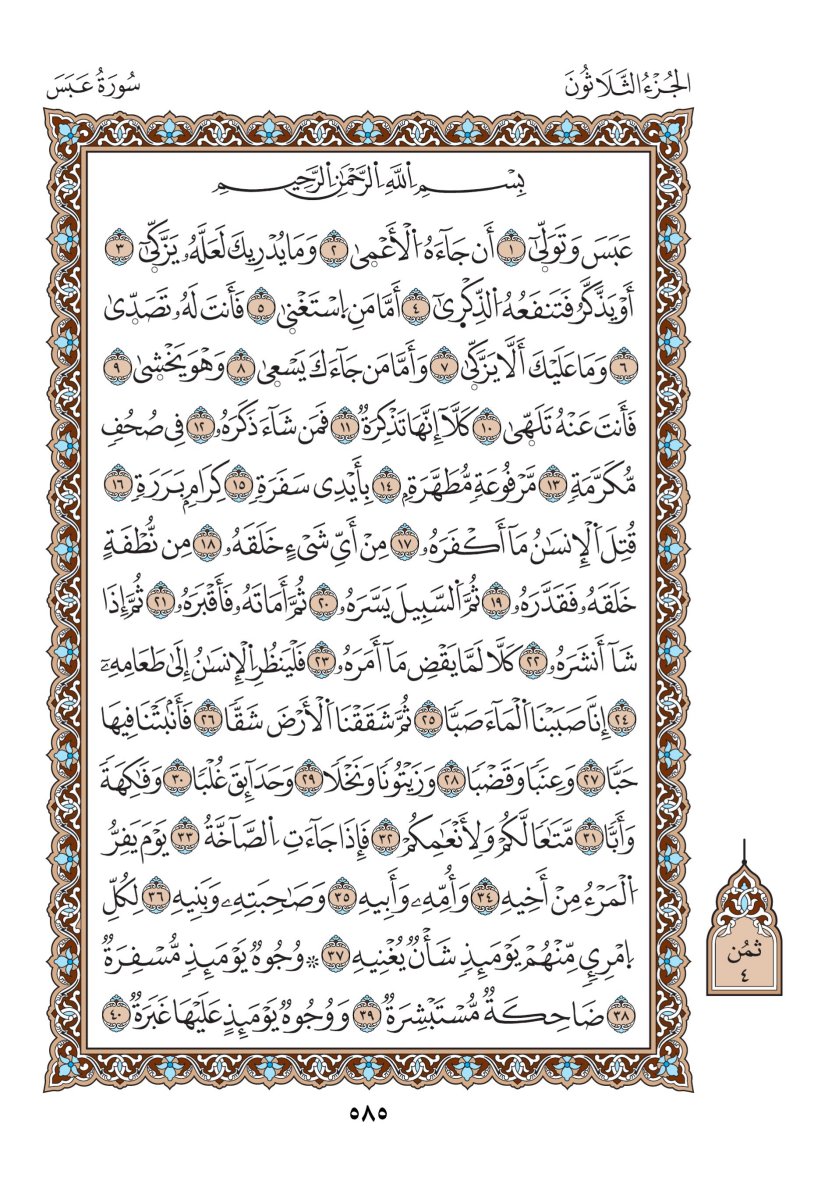 الجُزْءُ الثَّلَاثُونَ
سُورَةُ عَبَسَ
بِسْمِ اِ۬للَّهِ اِ۬لرَّحْمَٰنِ اِ۬لرَّحِيمِ
عَبَسَ وَتَوَلّ۪ىٰٓ ١ أَن جَآءَهُ اُ۬لْأَعْم۪ىٰ ٢ وَمَا يُدْرِيكَ لَعَلَّهُۥ يَزَّكّ۪ىٰٓ ٣
أَوْ يَذَّكَّرُ فَتَنفَعُهُ اُ۬لذِّكْر۪ىٰٓ ٤ أَمَّا مَنِ اِ۪سْتَغْن۪ىٰ ٥ فَأَنتَ لَهُۥ تَصَّدّ۪ىٰ
٦ وَمَا عَلَيْكَ أَلَّا يَزَّكّ۪ىٰ ٧ وَأَمَّا مَن جَآءَكَ يَسْع۪ىٰ ٨ وَهْوَ يَخْش۪ىٰ ٩
فَأَنتَ عَنْهُ تَلَهّ۪ىٰ ١٠ كَلَّآ إِنَّهَا تَذْكِرَةٌ ١١ فَمَن شَآءَ ذَكَرَهُۥ ١٢ فِى صُحُفٍ
مُّكَرَّمَةٍ ١٣ مَّرْفُوعَةٍ مُّطَهَّرَةٍۭ ١٤ بِأَيْدِى سَفَرَةٍ ١٥ كِرَامٍۭ بَرَرَةٍ ١٦
قُتِلَ اَ۬لْإِنسَٰنُ مَآ أَكْفَرَهُۥ ١٧ مِنْ أَىِّ شَىْءٍ خَلَقَهُۥ ١٨ مِن نُّطْفَةٍ
خَلَقَهُۥ فَقَدَّرَهُۥ ١٩ ثُمَّ اَ۬لسَّبِيلَ يَسَّرَهُۥ ٢٠ ثُمَّ أَمَاتَهُۥ فَأَقْبَرَهُۥ ٢١ ثُمَّ إِذَا
شَآ أَنشَرَهُۥ ٢٢ كَلَّا لَمَّا يَقْضِ مَآ أَمَرَهُۥ ٢٣ فَلْيَنظُرِ اِ۬لْإِنسَٰنُ إِلَىٰ طَعَامِهِۦٓ
٢٤ إِنَّا صَبَبْنَا اَ۬لْمَآءَ صَبًّا ٢٥ ثُمَّ شَقَقْنَا اَ۬لْأَرْضَ شَقًّا ٢٦ فَأَنۢبَتْنَا فِيهَا
حَبًّا ٢٧ وَعِنَبًا وَقَضْبًا ٢٨ وَزَيْتُونًا وَنَخْلًا ٢٩ وَحَدَآئِقَ غُلْبًا ٣٠ وَفَٰكِهَةً
وَأَبًّا ٣١ مَّتَٰعًا لَّكُمْ وَلِأَنْعَٰمِكُمْ ٣٢ فَإِذَا جَآءَتِ اِ۬لصَّآخَّةُ ٣٣ يَوْمَ يَفِرُّ
اُ۬لْمَرْءُ مِنْ أَخِيهِ ٣٤ وَأُمِّهِۦ وَأَبِيهِ ٣٥ وَصَٰحِبَتِهِۦ وَبَنِيهِ ٣٦ لِكُلِّ
اِ۪مْرِيٕٖ مِّنْهُمْ يَوْمَئِذٍ شَأْنٌ يُغْنِيهِ ٣٧ ۞ وُجُوهٌ يَوْمَئِذٍ مُّسْفِرَةٌ
٣٨ ضَاحِكَةٌ مُّسْتَبْشِرَةٌ ٣٩ وَوُجُوهٌ يَوْمَئِذٍ عَلَيْهَا غَبَرَةٌ ٤٠
ثُمُن
٤
٥٨٥